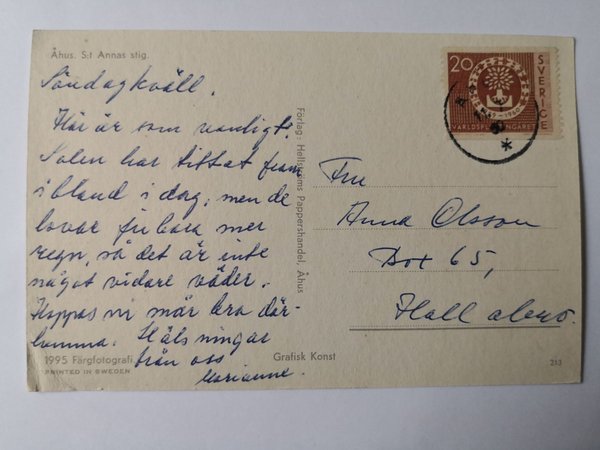 Åhus. S:t Annas stig.
Söndagkväll.
Här är som vanligt.
Solen har tittat fram
ibland i dag, men de
lovar ju bara mer
regn, så det är inte
något vidare väder.
Hoppas ni mår bra där-
hemma. Hälsningar
från oss
Marianne.
1995 Färgfotografi
PRINTED IN SWEDEN
Förlag: Hellströms Pappershandel, Åhus
Grafisk Konst
20
SVERIGE
1959-1960
VÄRLDSFLYKTINGÅRET
Fru
Anna Olsson
Box 65,
Hallabro.
213